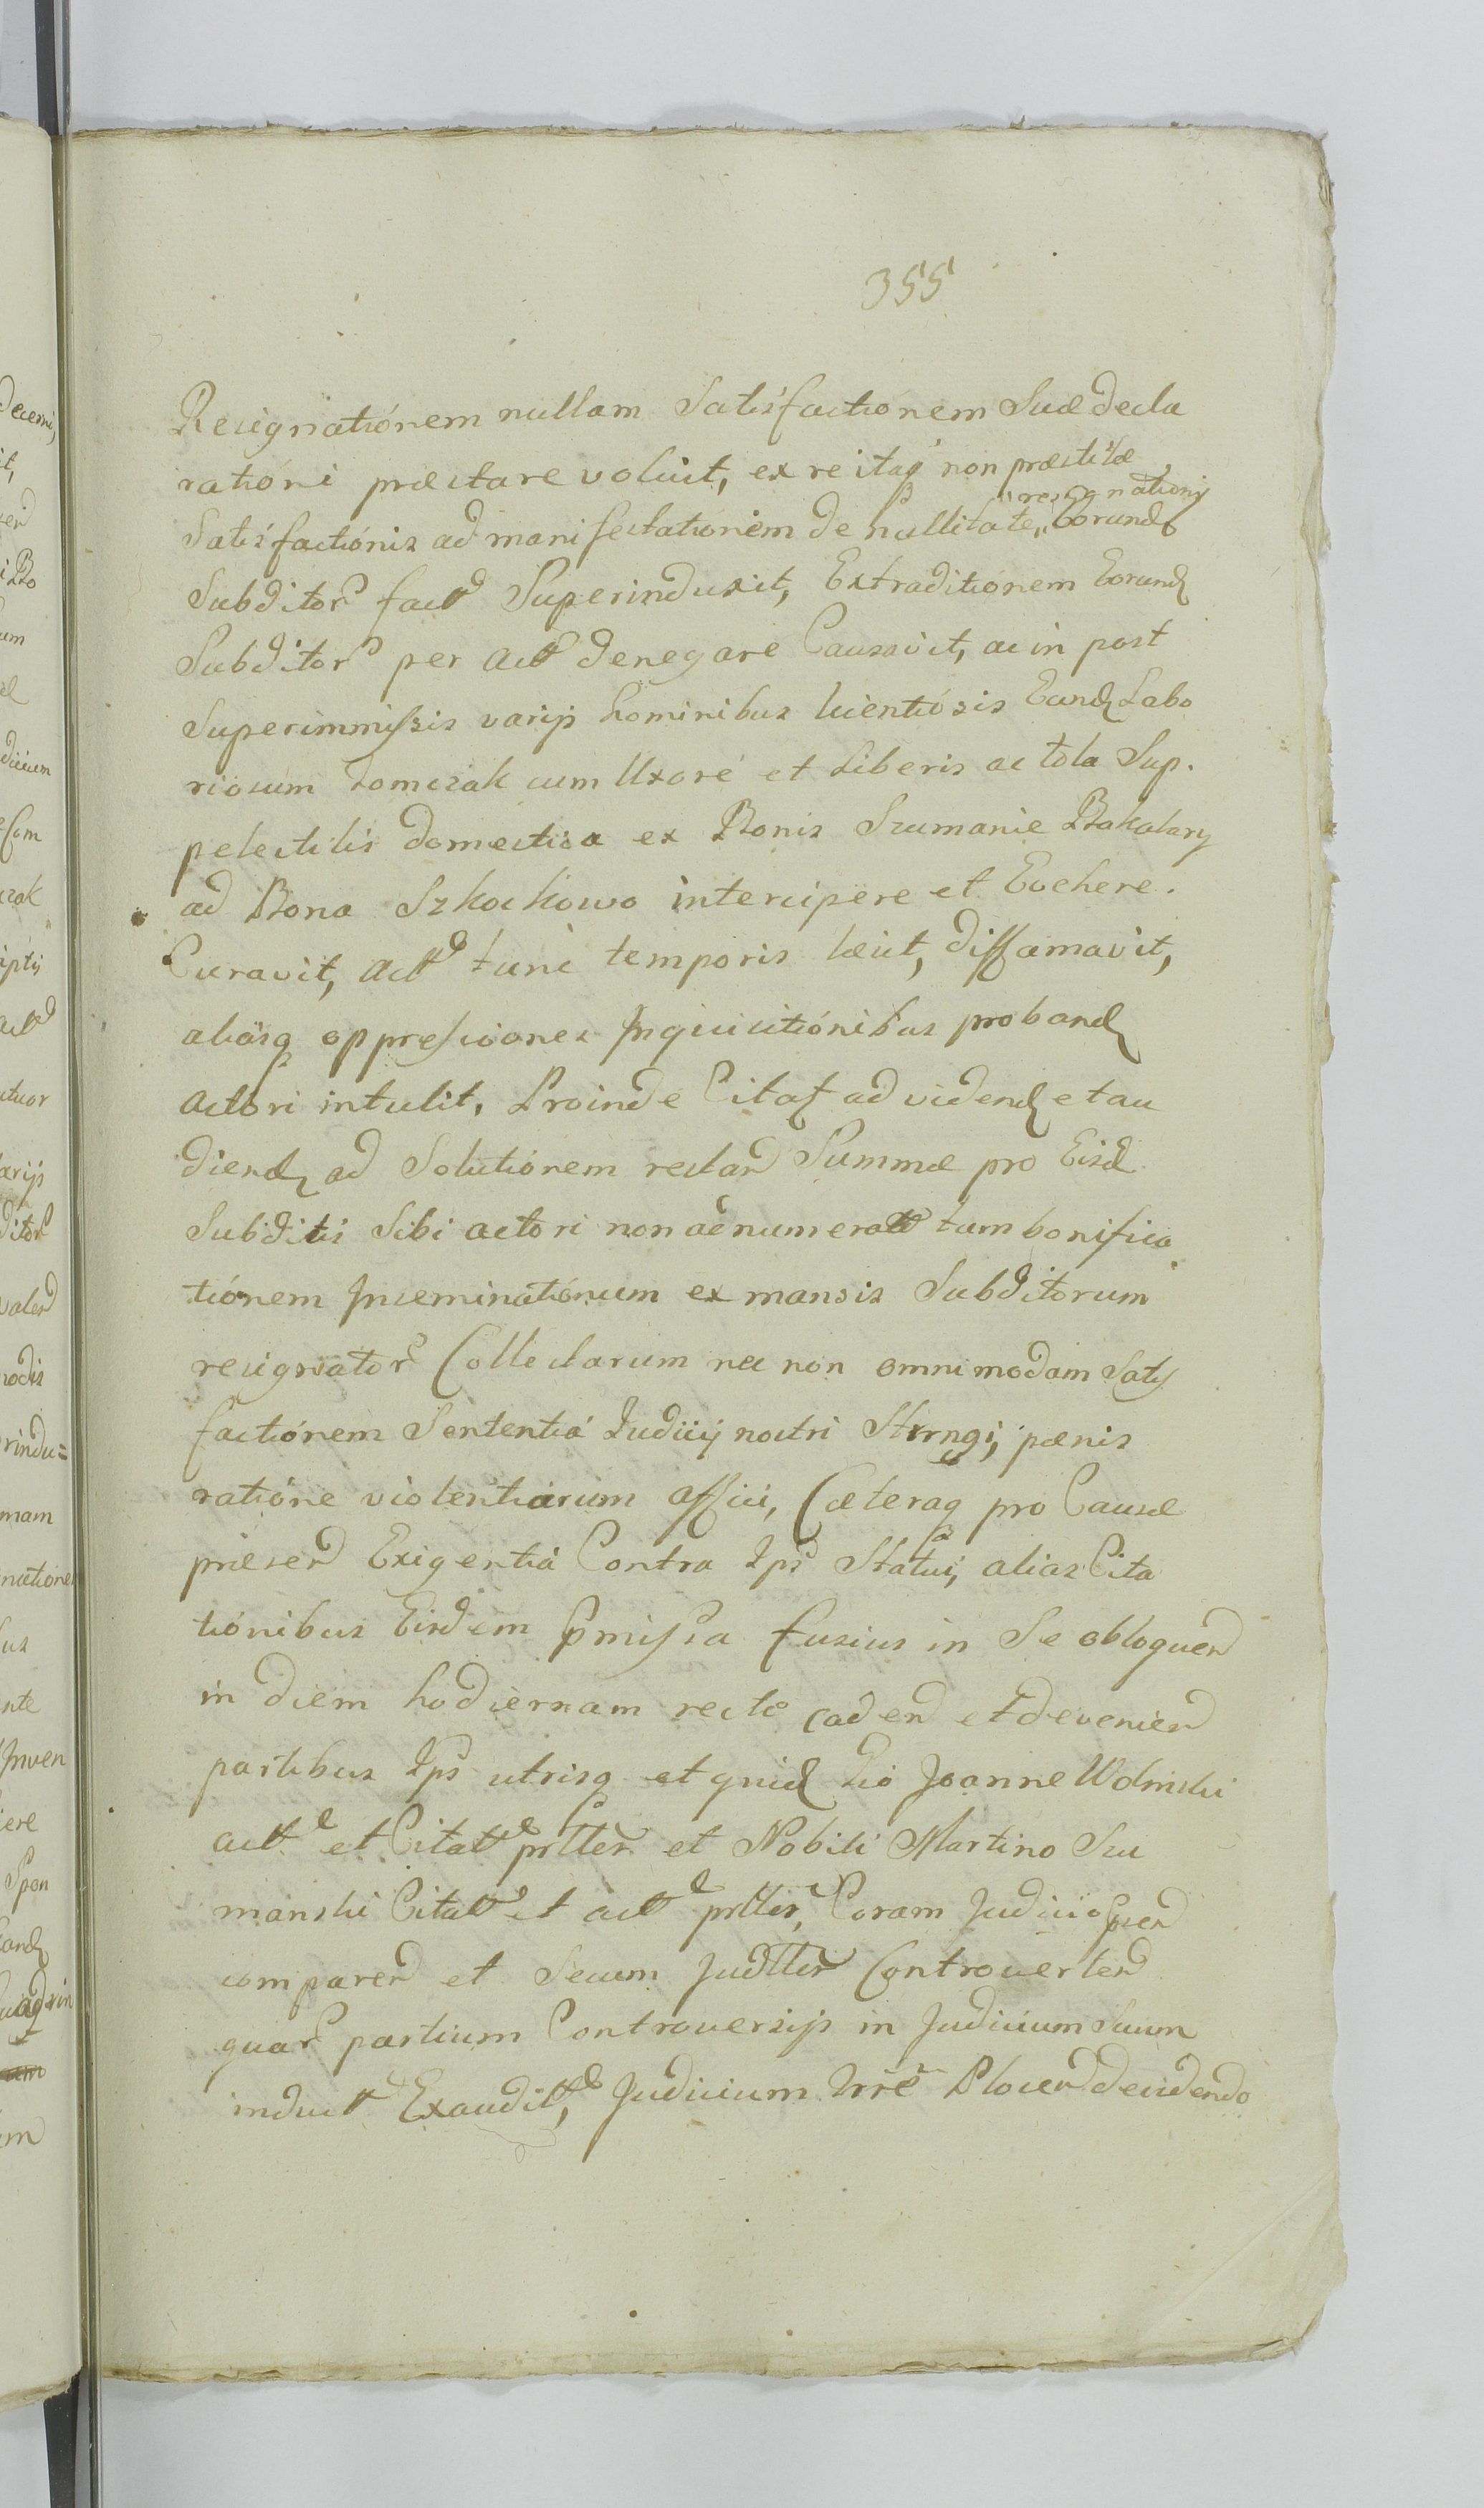 355
Resignatiónem nullam Satisfactionem Suæ decla
ratióni præstare voluit, ex re itaq non præstitæ
resignationis
Satisfactiónis ad manifestationem de nullitate Eorund
Subditor fact Superinduxit, Extraditionem Eorund
Subditor per Act denegare Causavit, ac in post
Superimmissis varijs hominibus licentiósis Eund Labo
riosum Tomczak cum Uxore et Liberis ac tota Sup.
pelectilis domestica ex Bonis Szumanie Bakalary
ad Bona Szkockowo intercipere et Evehere.
Curavit, Act tunc temporis læsit, diffamavit,
aliasq oppressiones Inquisitiónibus proband
Actori intulit, Proinde Citat ad vidend et au
diend ad Solutiónem restan Summæ pro Eisd
Subditis Sibi actori non adnumerat tum bonifica
tiónem Inseminatiónum ex mansis Subditorum
resignator Collectarum nec non omnimodam Satis
factiónem Sententiá Judicij nostri Strngi, pænis
ratióne violentiarum affici, Cæteraq pro Causæ
præsen Exigentiá Contra Ips Statui, alias Cita
tiónibus Eisdem pmissa fusius in Se obloquen
in diem hodiernam recte caden et devenien
partibus Ips utrisq et quid Lio Joanne Wolinski
act et Citat prtter et Nobili Martino Szu
manski Citat et act prtter, Coram Judicio psen
comparen et Secum Judtter Controverten
quar partium Controversijs in Judicium Suum
induct Exaudit, Judicium Nre Plocen decidendo
Decerni,
it,
Bo
um
dicium
Com
czak
iptis
act
ctuor
arijs
ditor
valen
modis
rindu=
mam
nctione
sus
nte
Inven
iere
Spon
cand
m